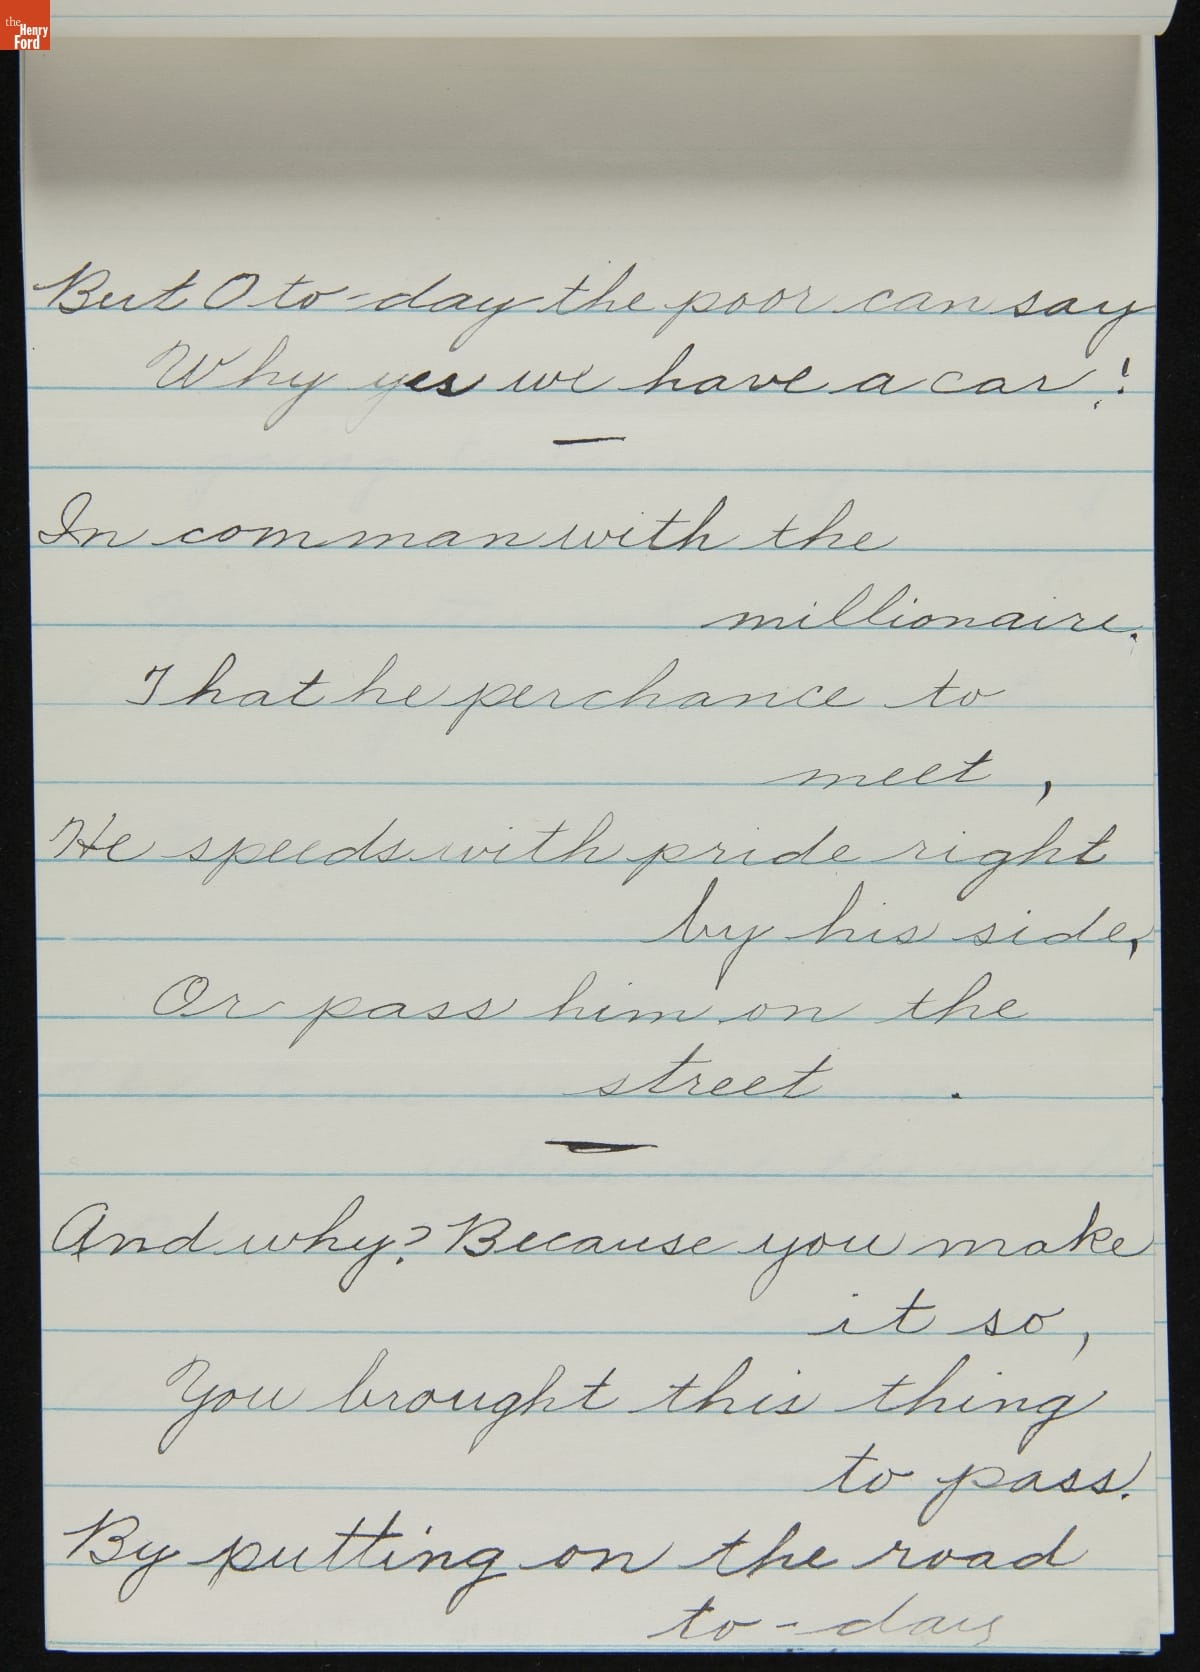 the
Henry
Ford
But O to-day the poor can say
Why yes we have a car!
In comman with the
millionaire.
That he perchance to
meet,
He speeds with pride right
by his side,
Or pass him on the
street.
And why? Because you make
it so,
You brought this thing
to pass.
By putting on the road
to-day